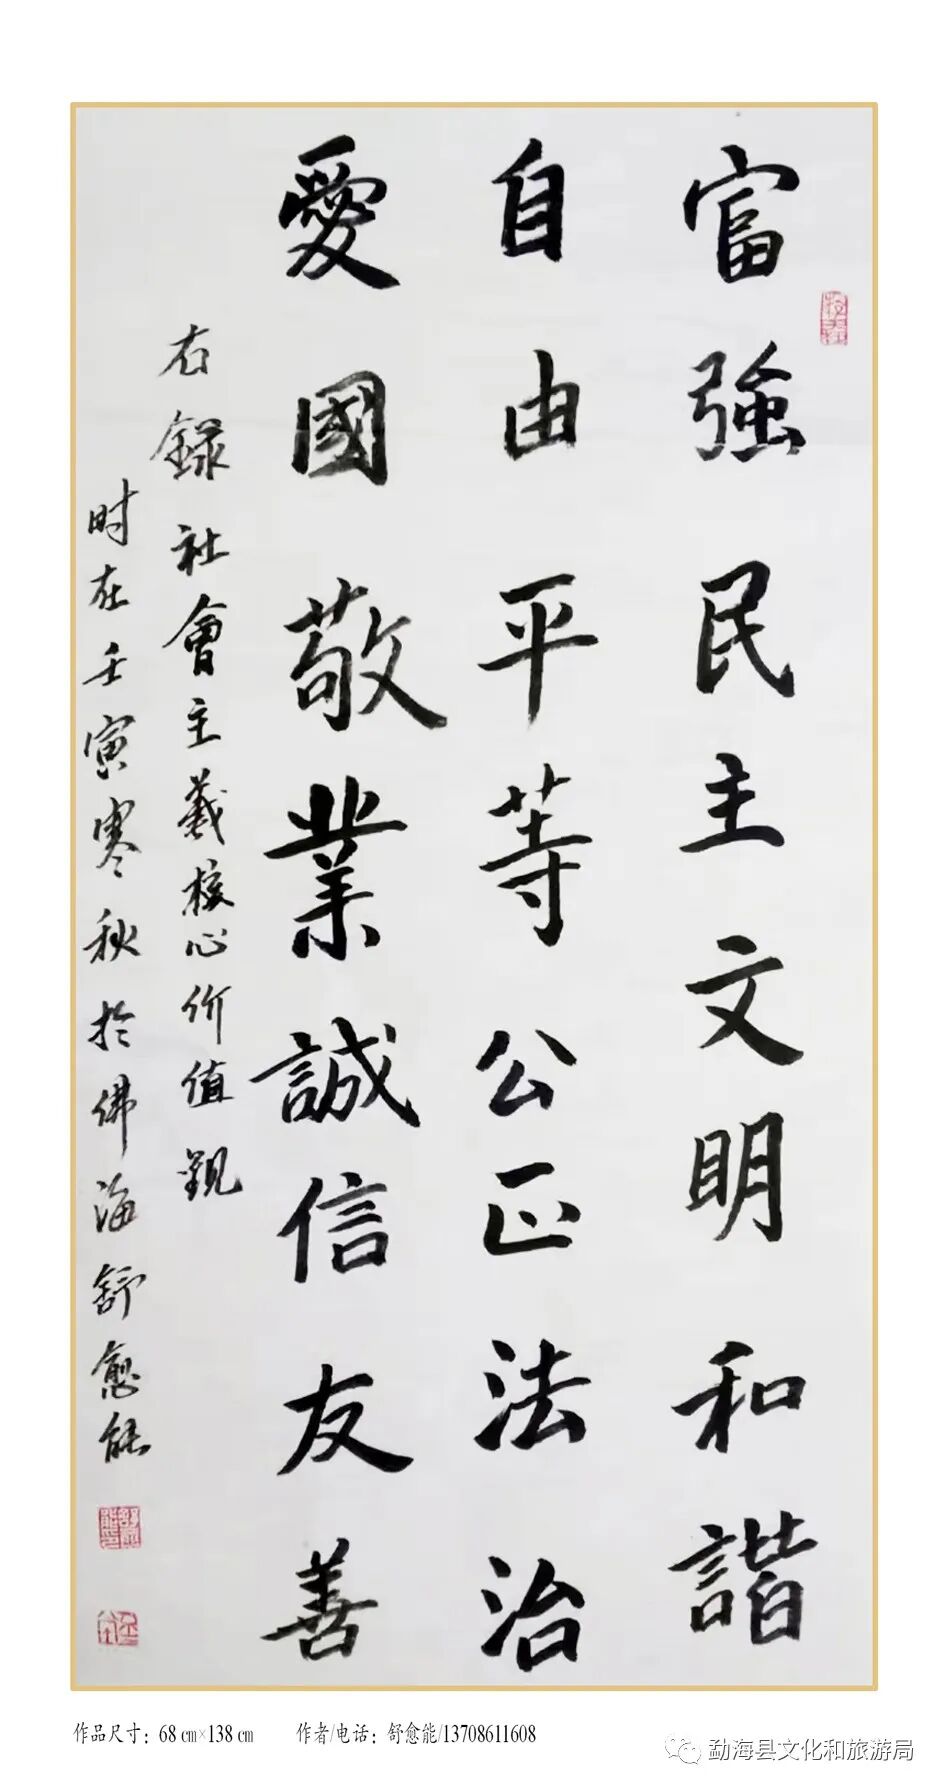 富強民主文明和諧
自由平等公正法治
愛國敬業誠信友善
右録社會主義核心价值觀
时在壬寅寒秋於佛海舒愈能
作品尺寸：68 cm×138 cm 作者/电话：舒愈能/13708611608
勐海县文化和旅游局